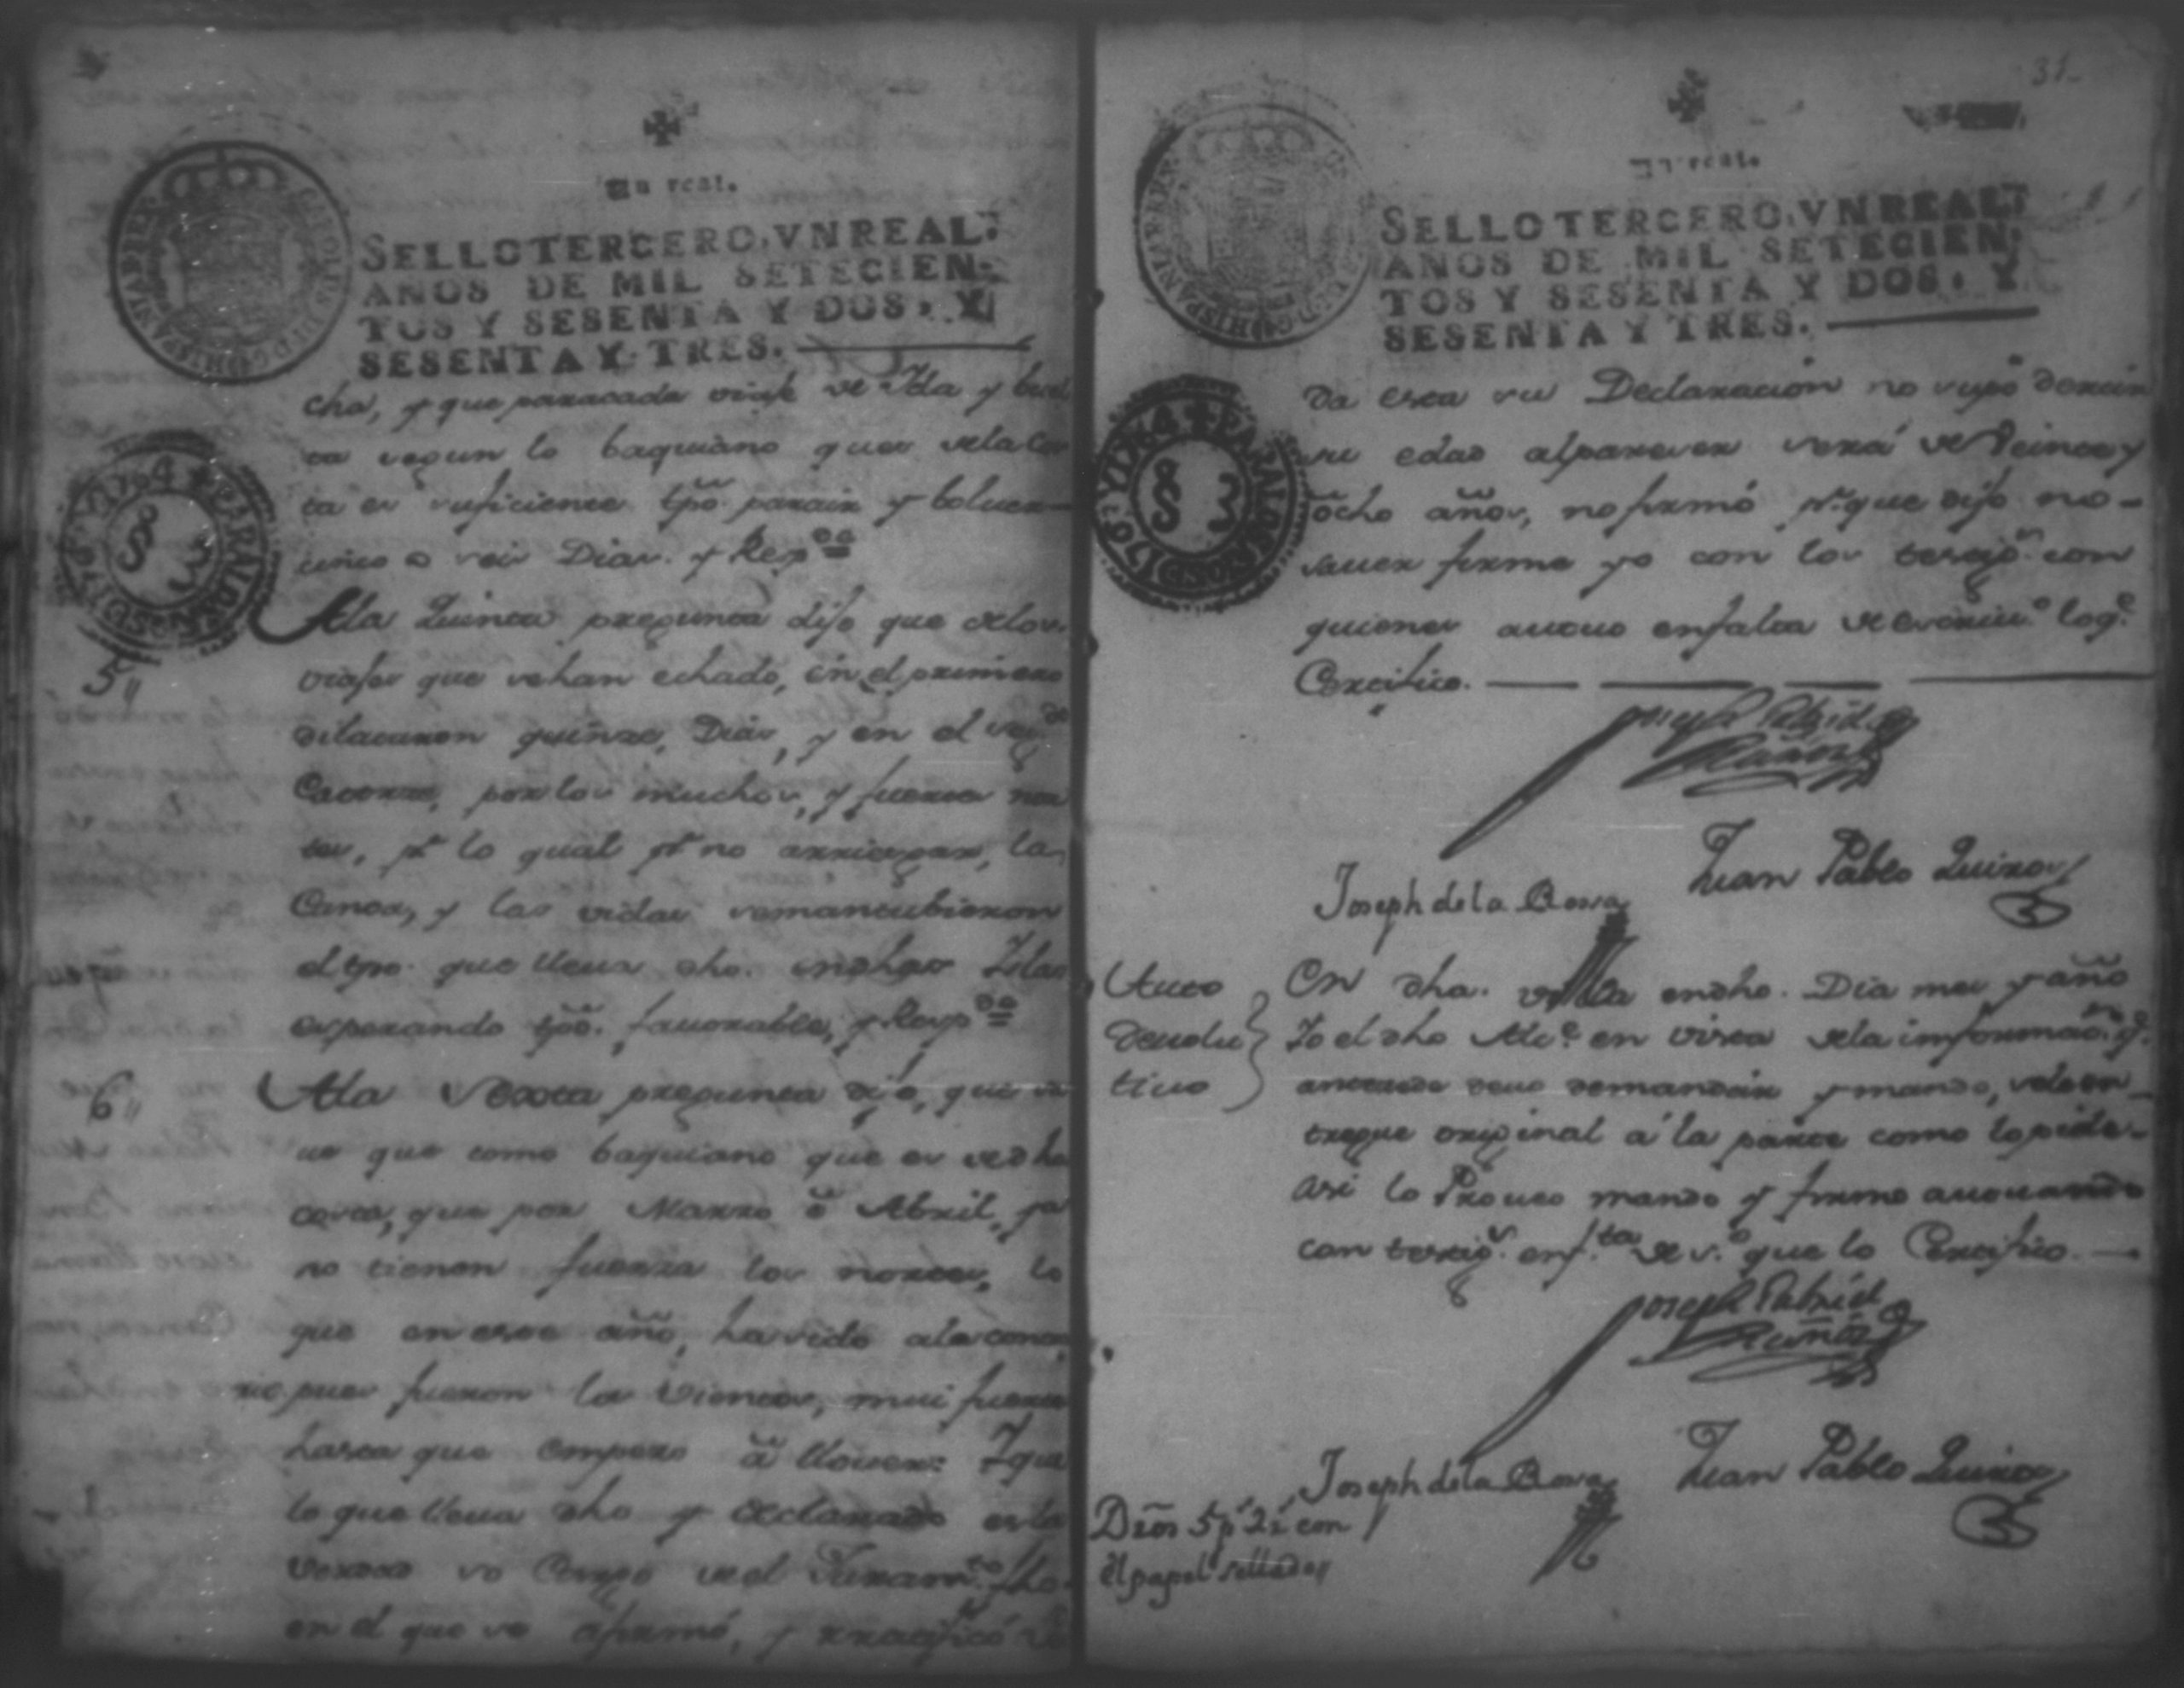 Un real.
SELLO TERCERO, VN REAL,
AÑOS DE MIL SETECIEN-
TOS Y SESENTA Y DOS, Y
SESENTA Y TRES.
cha, y que para cada viaje de Ida y buel
ta segun lo baquiano que es dela Cos
ta es suficiente tpo. para ir y bolver
cinco o seis Dias. y Resp.de
5
Ala Quinta pregunta dijo que delos
viajes que se han echado, en el primero
dilataron quinze, Dias, y en el seg.do
Catorze, por los muchos, y fuertes nor
tes, pr. lo qual pr. no arriesgar, la
Canoa, y las vidas se mantubieron
el tpo. que lleva dho. en dhas Islas
esperando tpo. favorable, y Resp.de
6
Ala Sexta pregunta dijo, que
que como baquiano que es de dha
costa, que por Marzo ó Abril, ya
no tienen fuerza los nortes, lo
que en este año, ha sido ala contra
rio pues fueron los Vientos, mui fuertes
hasta que empezo á llover: Y que
lo que lleva dho y declarado es la
verdad so Cargo del Juram.to fho.
en el que se afirmó, y rratificó
31
Un real.
SELLO TERCERO, VN REAL,
AÑOS DE MIL SETECIEN-
TOS Y SESENTA Y DOS, Y
SESENTA Y TRES.
da esta su Declaracion no supo dezir
su edad al parecer será de Veinte y
ocho años, no firmó pr. que dijo no
saver firme yo con los testigos con
quienes actuo en falta de escriv.o log.e
Certifico.
Joseph Gabriel
Nuñez
Joseph de la Rosa
Juan Pablo Quiros
Auto
devolu
tivo
En dha. villa en dho. Dia mes y año
Yo el dho Alc.e en vista dela informac.n q.
antecede devo demandar y mando, sele en
tregue original á la parte como lo pide
asi lo Proveo mando y firmo actuando
con testig.s en f.ta de s.o que lo Certifico.
Joseph Gabriel
Nuñez
Joseph dela Rosa
Juan Pablo Quiros
Dros 5 p 2 r con
el papel sellado